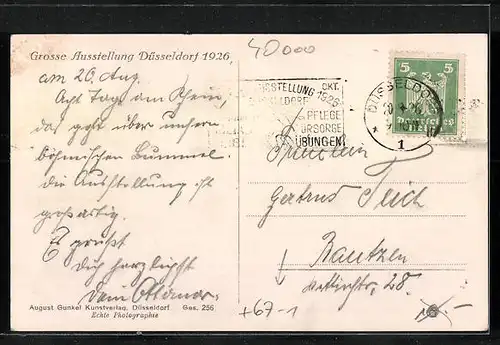 Grosse Ausstellung Düsseldorf 1926,
40000
am 20. Aug.
Acht Tage am Rhein,
das geht über unsern
böhmischen Bummel.
die Ausstellung ist
großartig.
Es grüßt
Dich herzlichst
Dein Ottomar
August Gunkel Kunstverlag, Düsseldorf Ges. 256
Echte Photographie
AUSSTELLUNG OKT.
1926
PFLEGE
FÜRSORGE
ÜBUNGEN
DÜSSELDORF
1
5 5
Deutsches
Fräulein
Gertrud
Bautzen
28.
+67-1